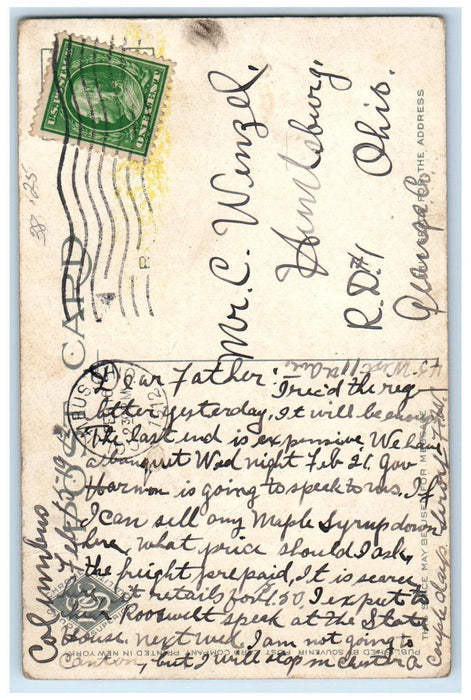 38 .25
U.S. POSTAGE
ONE CENT
POST CARD
Mr. C. Wenzel,
Huntsburg,
R.D.#1 Ohio.
Geauga Co.
FOR THE ADDRESS
COLUMBUS
FEB 16
230
1912
Columbus
Feb. 15, 1912
45 West 11th Ave.
Dear Father: I rec'd the reg
letter yesterday, it will be enough
The last end is expensive We have
a banquet Wed night Feb 21. Gov
Harmon is going to speak to us. If
I can sell any Maple Syrup down
here, what price should I ask,
the freight prepaid, it is scarce
it retails for $1.50 I expect to
hear Roosevelt speak at the State
House next Wed. I am not going to
Canton, but I will stop in Chester a
couple days.
THIS SPACE MAY BE USED FOR MESSAGE
PUBLISHED BY SOUVENIR POST CARD COMPANY PRINTED IN NEW YORK